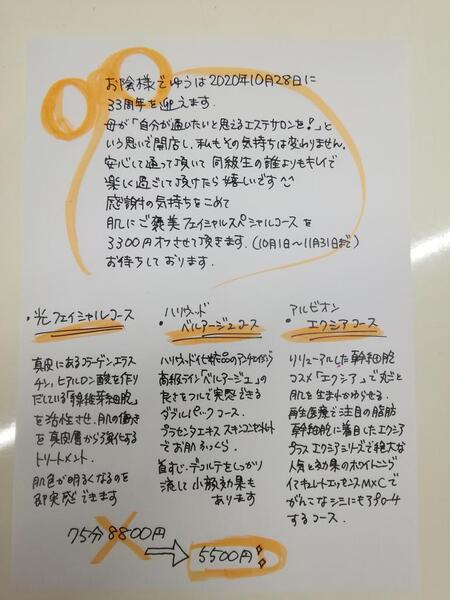 お陰様でゆうは2020年10月28日に
33周年を迎えます。
母が「自分が通いたいと思えるエステサロンを!」と
いう思いで開店し、私もその気持ちは変わりません。
安心して通って頂いて同級生の誰よりもキレイで
楽しく過ごして頂けたら嬉しいです^^
感謝の気持ちをこめて
肌にご褒美フェイシャルスペシャルコースを
3300円オフさせて頂きます。(10月1日〜11月31日まで)
お待ちしております。
・光フェイシャルコース
真皮にあるコラーゲン、エラス
チン、ヒアルロン酸を作り
だしている「線維芽細胞」
を活性させ、肌の働き
を真皮層から強化する
トリートメント。
肌色が明るくなるのを
即実感できます
・ハリウッド
ベルアージュコース
ハリウッド化粧品のアンチエイジング
高級ライン「ベルアージュ」の
良さをフルで実感できる
ダブルパックコース。
プラセンタエキス スキンコンセントレ
でお肌ふっくら。
首すじ・デコルテをしっかり
流して小顔効果も
あります
・アルビオン
エクシアコース
リリューアルした幹細胞
コスメ「エクシア」で丸ごと
肌を生まれかわらせる。
再生医療で注目の脂肪
幹細胞に着目したエクシア
プラスエクシアシリーズで絶大な
人気と効果のホワイトニング
イマキュレートエッセンスMXCで
がんこなシミにもアプローチ
するコース。
75分8800円
5500円